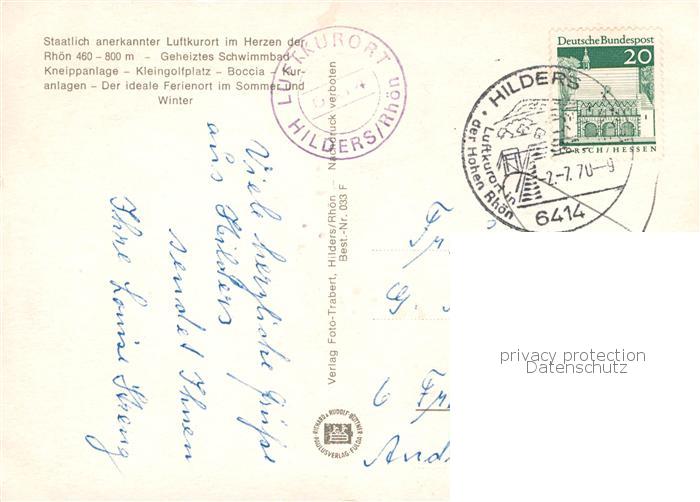 Staatlich anerkannter Luftkurort im Herzen der
Rhön 460 – 800 m - Geheiztes Schwimmbad
Kneippanlage - Kleingolfplatz - Boccia - Kur-
anlagen - Der ideale Ferienort im Sommer und
Winter
LUFTKURORT
HILDERS/Rhön
Deutsche Bundespost
20
LORSCH/HESSEN
HILDERS
Luftkurort in
der Hohen Rhön
-2.-7.70-9
6414
Viele herzliche Grüße
aus Hilders
sendet Ihnen
Ihre Louise Streng
Verlag Foto-Trabert, Hilders/Rhön - Nachdruck verboten
Best.-Nr. 033 F
RICHARD & RUDOLF BÜTTNER
PAULUSVERLAG · FULDA
6
privacy protection
Datenschutz